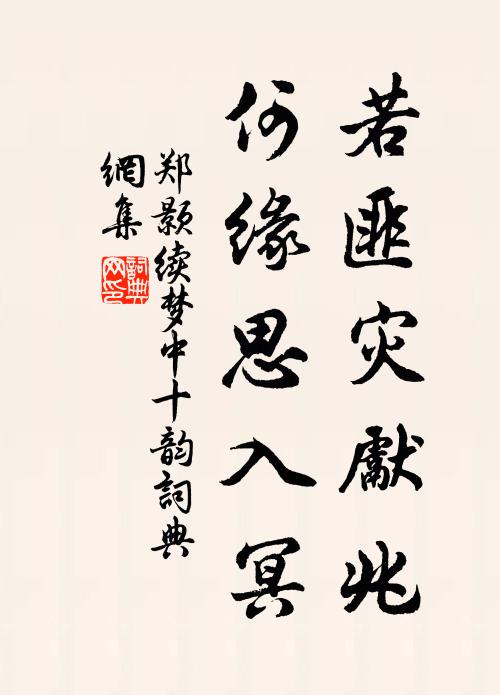 若匪灾獻兆
何缘思入冥
郑颢续梦中十韵詞典
網集
詞典
网印